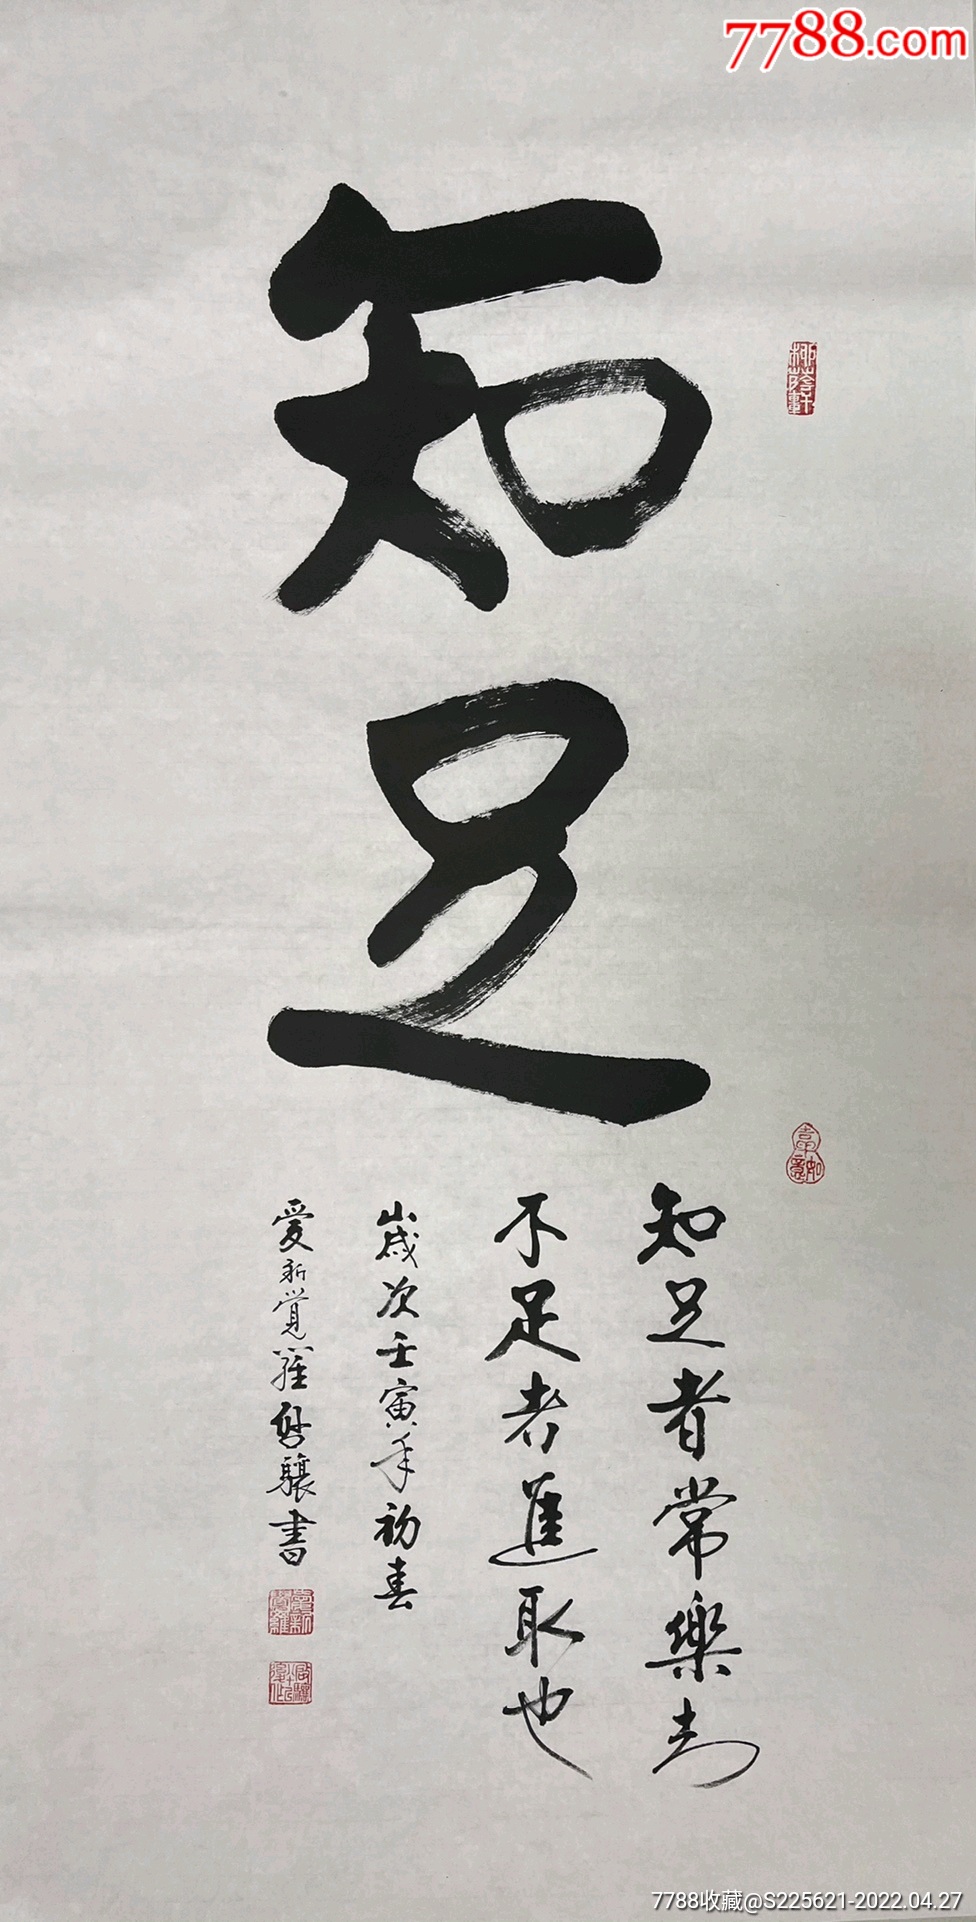 7788.com
知足
知足者常樂
不足者進取也
歲次壬寅年初春
愛新覺羅啓驤書
柳蔭軒
7788收藏@S225621-2022.04.27